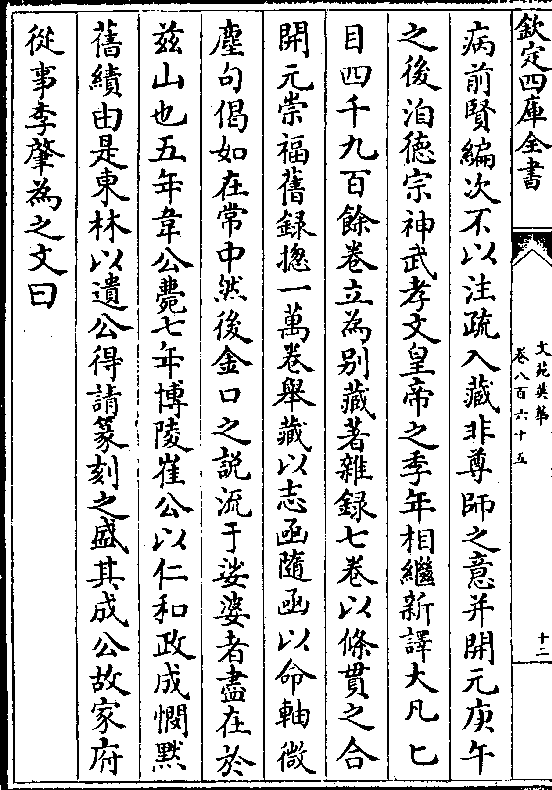 欽定四庫全書
文苑英華
卷八百六十五
十二
病前賢編次不以注疏入藏非尊師之意并開元庚午
之後洎德宗神武孝文皇帝之季年相繼新譯大凡七
目四千九百餘卷立為别藏著雜録七卷以條貫之合
開元崇福舊録揔一萬卷舉藏以志函隨函以命軸微
塵句偈如在常中然後金口之説流于娑婆者盡在於
兹山也五年韋公薨七年博陵崔公以仁和政成憫黙
舊績由是東林以遺公得請篆刻之盛其成公故家府
從事李肇為之文曰